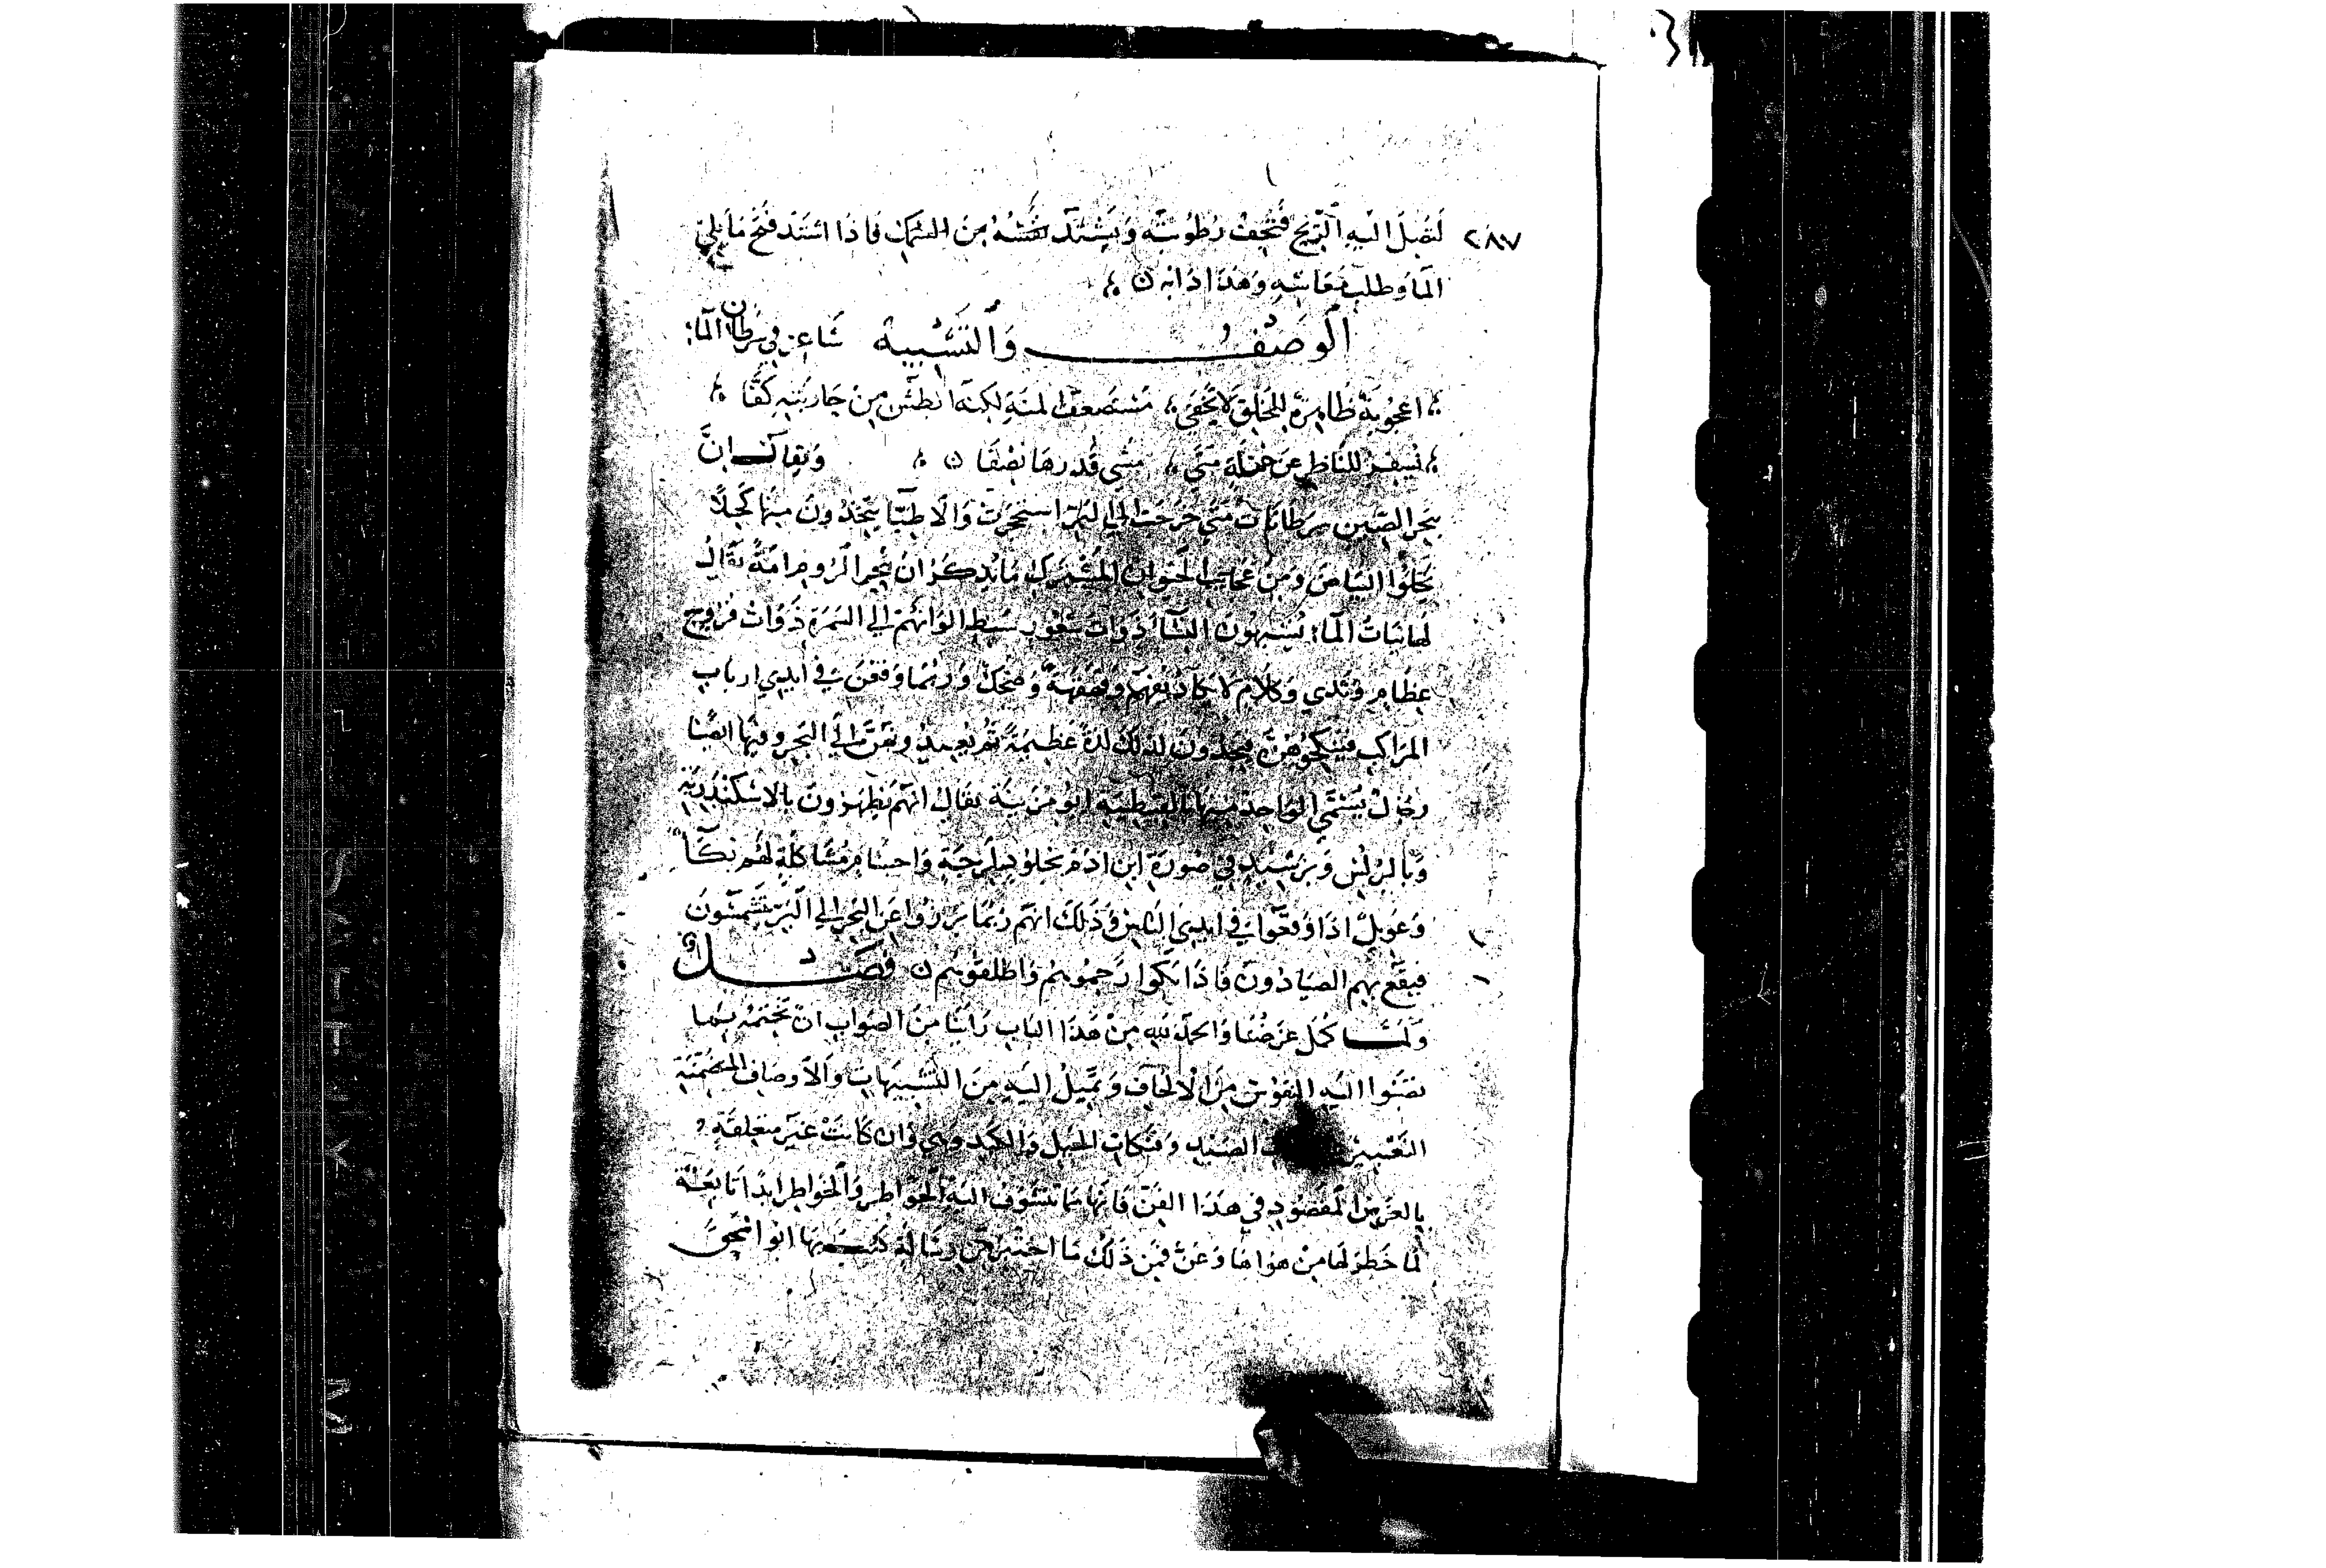 ٢٨٧ لتصل اليه الريح فتجف رطوبته ويشتد نفسه من السمك فاذا اشتد فتح ما يلي
الما وطلب معاشه وهذا دابه ن
الوصف والتشبيه شاعر في سرطان الما
اعجوبة ظاهرة للخلق لا تخفى مستضعف المنة لكنه ابطش من جاريته كفا
يسفر للناظر عن جملة متى مشى قدرها نصفا ن ويقال ان
ببحر الصين سرطانات متى خرجت الي البر استحجرت والاطبا يتخذون منها كحلا
يجلوا البياض ومن عجايب الحيوان المشترك ما يذكر ان ببحر الروم امة يقال
لها نبات الما يشبهون النسا ذوات شعور سبط الوانهم الي السمرة ذوات فروج
عظام وثدي وكلام لا يكاد يفهم وقهقهة وضحك وربما وقعن في ايدي ارباب
المراكب فينكحوهن فيجدون لذلك لذة عظيمة ثم يعيدونهن الي البحر وفيها ايضا
رجال يسمي الواحد منها بالقبطية ابو مزينة يقال انهم يظهرون بالاسكندرية
وبالبرلس وبرشيد في صورة ابن ادم بجلود لزجة واجسام مشاكلة لهم بكا
وعويل اذا وقعوا في ايدي الناس وذلك انهم ربما برزوا عن البحر الي البر يتشمسون
فيقع بهم الصيادون فاذا بكوا رحموهم واطلقوهم ن فصل
ولما كمل غرضنا والحمد لله من هذا الباب راينا من الصواب ان نختمه بما
تصبوا اليه النفوس من الالحاف وتميل اليه من التشبيهات والاوصاف المضمنة
الصيد ونكات الحيل والكيد وهي وان كانت غير متعلقة
بالغرض المقصود في هذا الفن فانها مما تتشوف اليه الخواطر والخواطر ابدا تابعة
لما خطر لها من هواها وعن فمن ذلك ما اخترته من رسالة كتب بها ابو اسحق